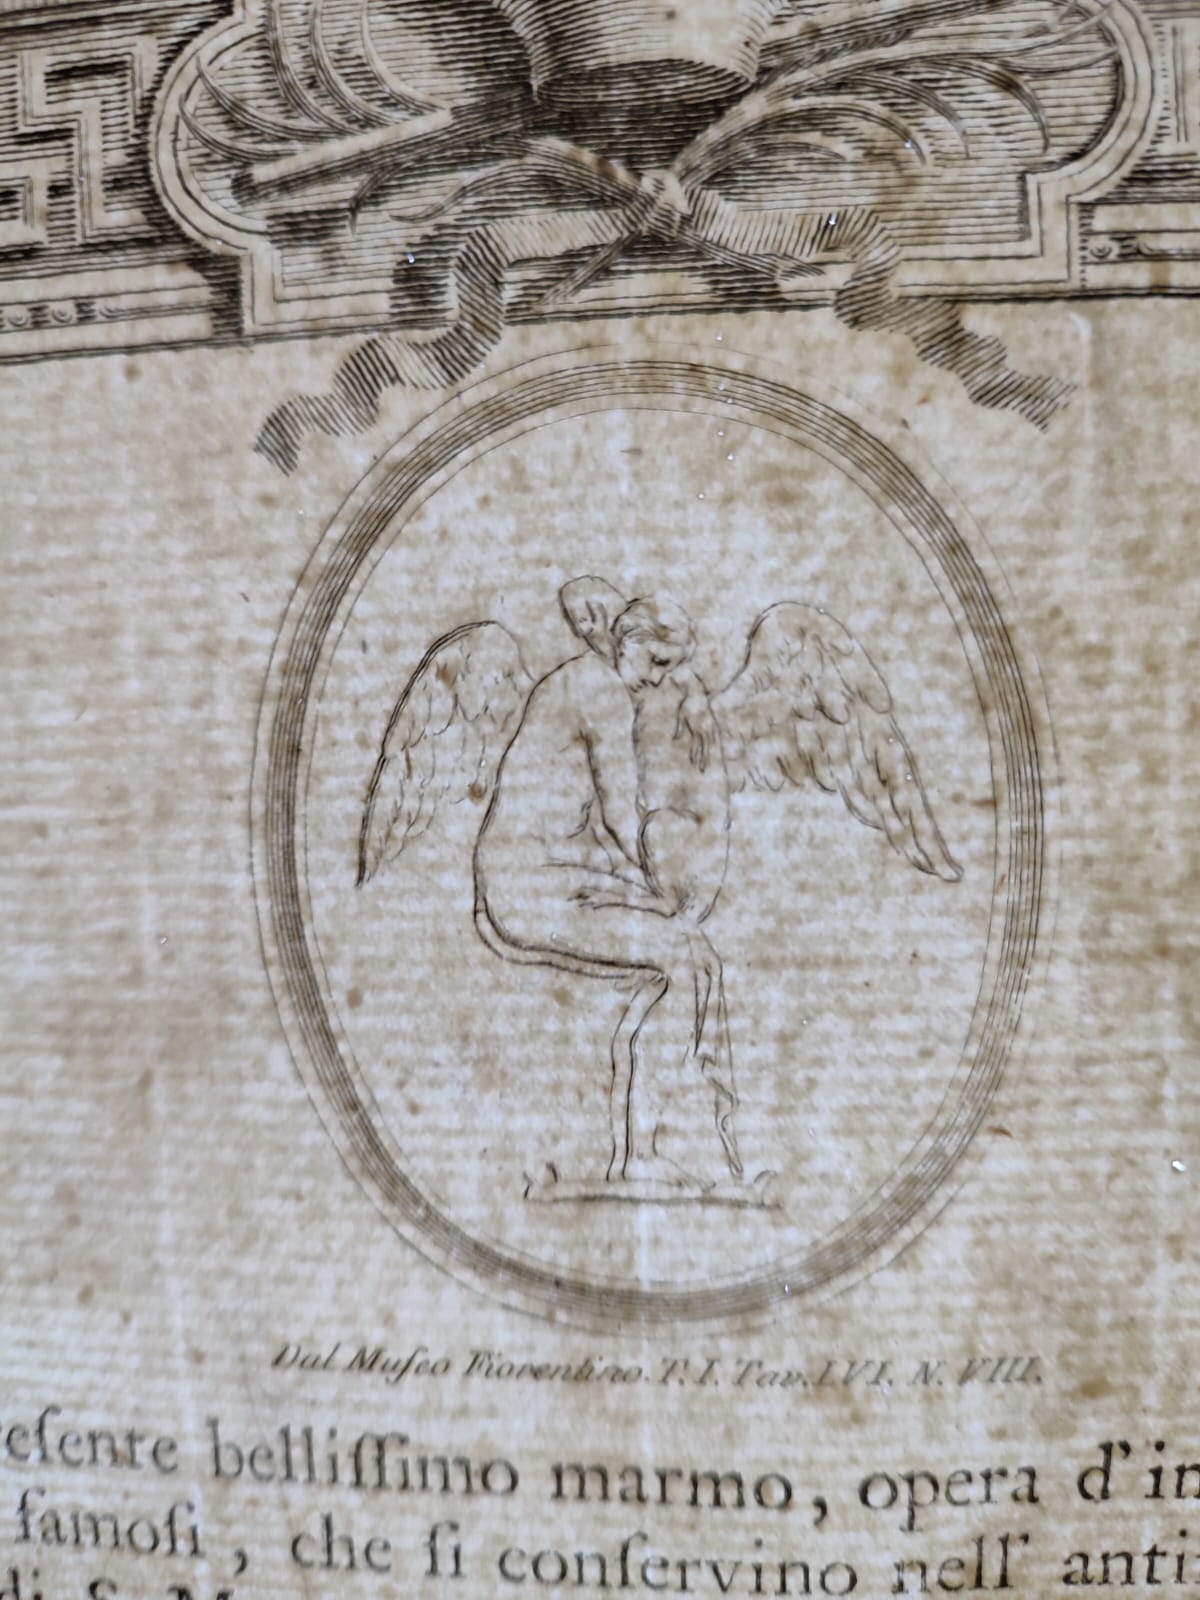 Dal Muſeo Fiorentino. T. I. Tav. LVI. N. VIII.
eſente belliſſimo marmo, opera d'in
famoſi, che ſi conſervino nell' anti
di S. M